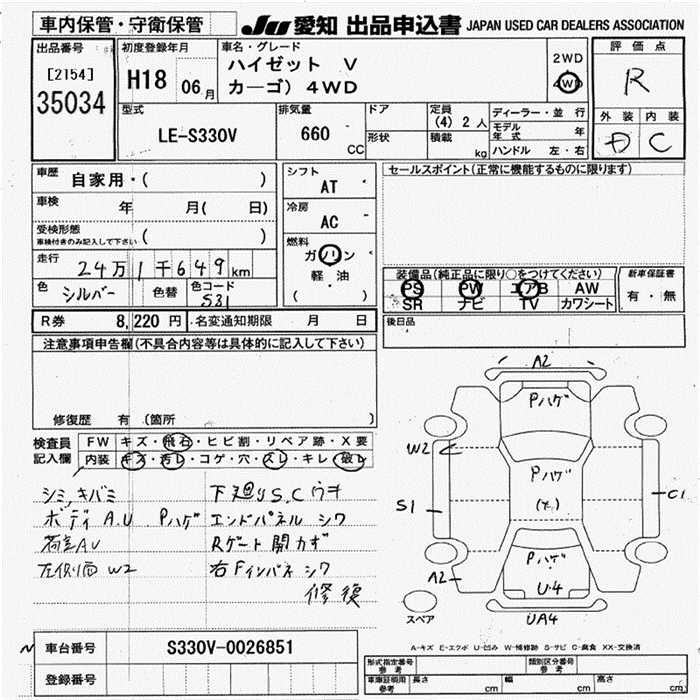 車内保管・守衛保管
JU 愛知 出品申込書 JAPAN USED CAR DEALERS ASSOCIATION
出品番号
[2154]
35034
初度登録年月
H18 06月
車名・グレード
ハイゼット V
カーゴ) 4WD
2WD
4WD
評価点
R
外装 内装
D C
型式
LE-S330V
排気量
660 CC
ドア
形状
定員
(4) 2人
積載 kg
ディーラー・並行
モデル年式 年
ハンドル 左・右
車歴 自家用・( )
車検 年 月( 日)
受検形態
車検付きのみ記入して下さい ( )
走行 24万1千649km
色 シルバー 色替 色コード S31
シフト
AT
冷房
AC
燃料
ガソリン
軽・油
( )
セールスポイント(正常に機能するものに限ります)
装備品(純正品に限り○をつけてください)
PS PW エアB AW
SR ナビ TV カワシート
新車保証書
有・無
R券 8,220円 名変通知期限 月 日
後日品
注意事項申告欄(不具合内容等は具体的に記入して下さい)
修復歴 有 〔箇所 〕
検査員
記入欄
FW キズ・飛石・ヒビ割・リペア跡・X要
内装 キズ・汚レ・コゲ・穴・スレ・キレ・破レ
シミ,キバミ
ボディ A.U Pハゲ
荷室AU
左側面 W2
下廻りS.C ウキ
エンドパネル シワ
Rゲート開カず
右Fインパネ シワ
修復
A2
Pハゲ
W2
Pハゲ
S1
C1
Pハゲ
U4
A2
UA4
スペア
車台番号 S330V-0026851
登録番号
A-キズ E-エクボ U-凹み W-補修跡 S-サビ C-腐食 XX-交換済
形式指定番号 参考
類別区分番号 参考
車庫証明用 参考 長さ cm 幅 cm 高さ cm